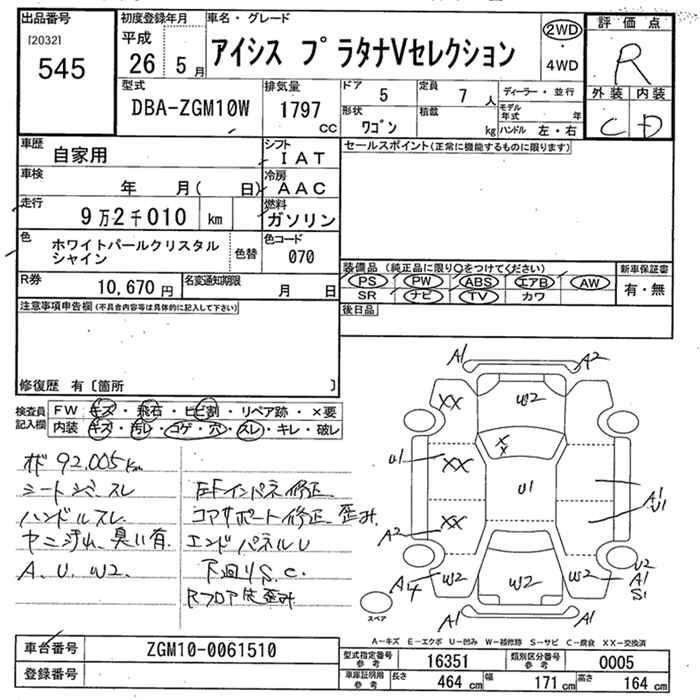 出品番号
[2032]
545
初度登録年月
平成
26 5月
車名・グレード
アイシス プラタナVセレクション
2WD
・
4WD
評価点
R
外装 内装
C D
型式
DBA-ZGM10W
排気量
1797
cc
ドア
5
定員
7 人
形状
ワゴン
積載
kg
ディーラー・並行
モデル年式 年
ハンドル 左・右
車歴
自家用
シフト
IAT
車検
年 月( 日)
冷房
AAC
走行
9万2千010 km
燃料
ガソリン
色
ホワイトパールクリスタルシャイン
色替
色コード
070
R券
10,670 円
名変通知期限
月 日
セールスポイント(正常に機能するものに限ります)
装備品 (純正品に限り○をつけてください)
PS PW ABS エアB AW
SR ナビ TV カワ
新車保証書
有・無
後日品
注意事項申告欄(不具合内容等は具体的に記入して下さい)
修復歴 有〔箇所 〕
検査員記入欄
FW キズ・飛石・ヒビ割・リペア跡・×要
内装 キズ・汚レ・コゲ・穴・スレ・キレ・破レ
92,005km
シートシミ・スレ
ハンドルスレ
ヤニ汚レ、臭い有
A、U、W2、
左Fインパネ修正
コアサポート修正、歪み
エンドパネルU
下廻りS.C.
RフロアE歪み
A1
A2
XX
W2
XX
U1
XX
U1
A1
U1
A2
XX
A4
W2
W2
W2
U2
A1
S1
A1
A1
スペア
A－キズ E－エクボ U－凹み W－補修跡 S－サビ C－腐食 XX－交換済
車台番号
ZGM10-0061510
登録番号
型式指定番号 参考
16351
類別区分番号 参考
0005
車庫証明用 参考
長さ 464 cm
幅 171 cm
高さ 164 cm